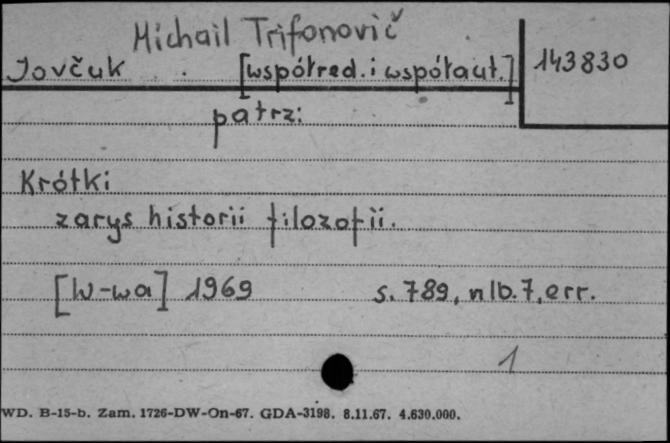 Michail Trifonovič
Jovčuk [współred. i współaut.] 143830
patrz:
Krótki
zarys historii filozofii.
[W-wa] 1969 s. 789, nlb. 7, err.
1
WD. B-15-b. Zam. 1726-DW-On-67. GDA-3198. 8.11.67. 4.630.000.